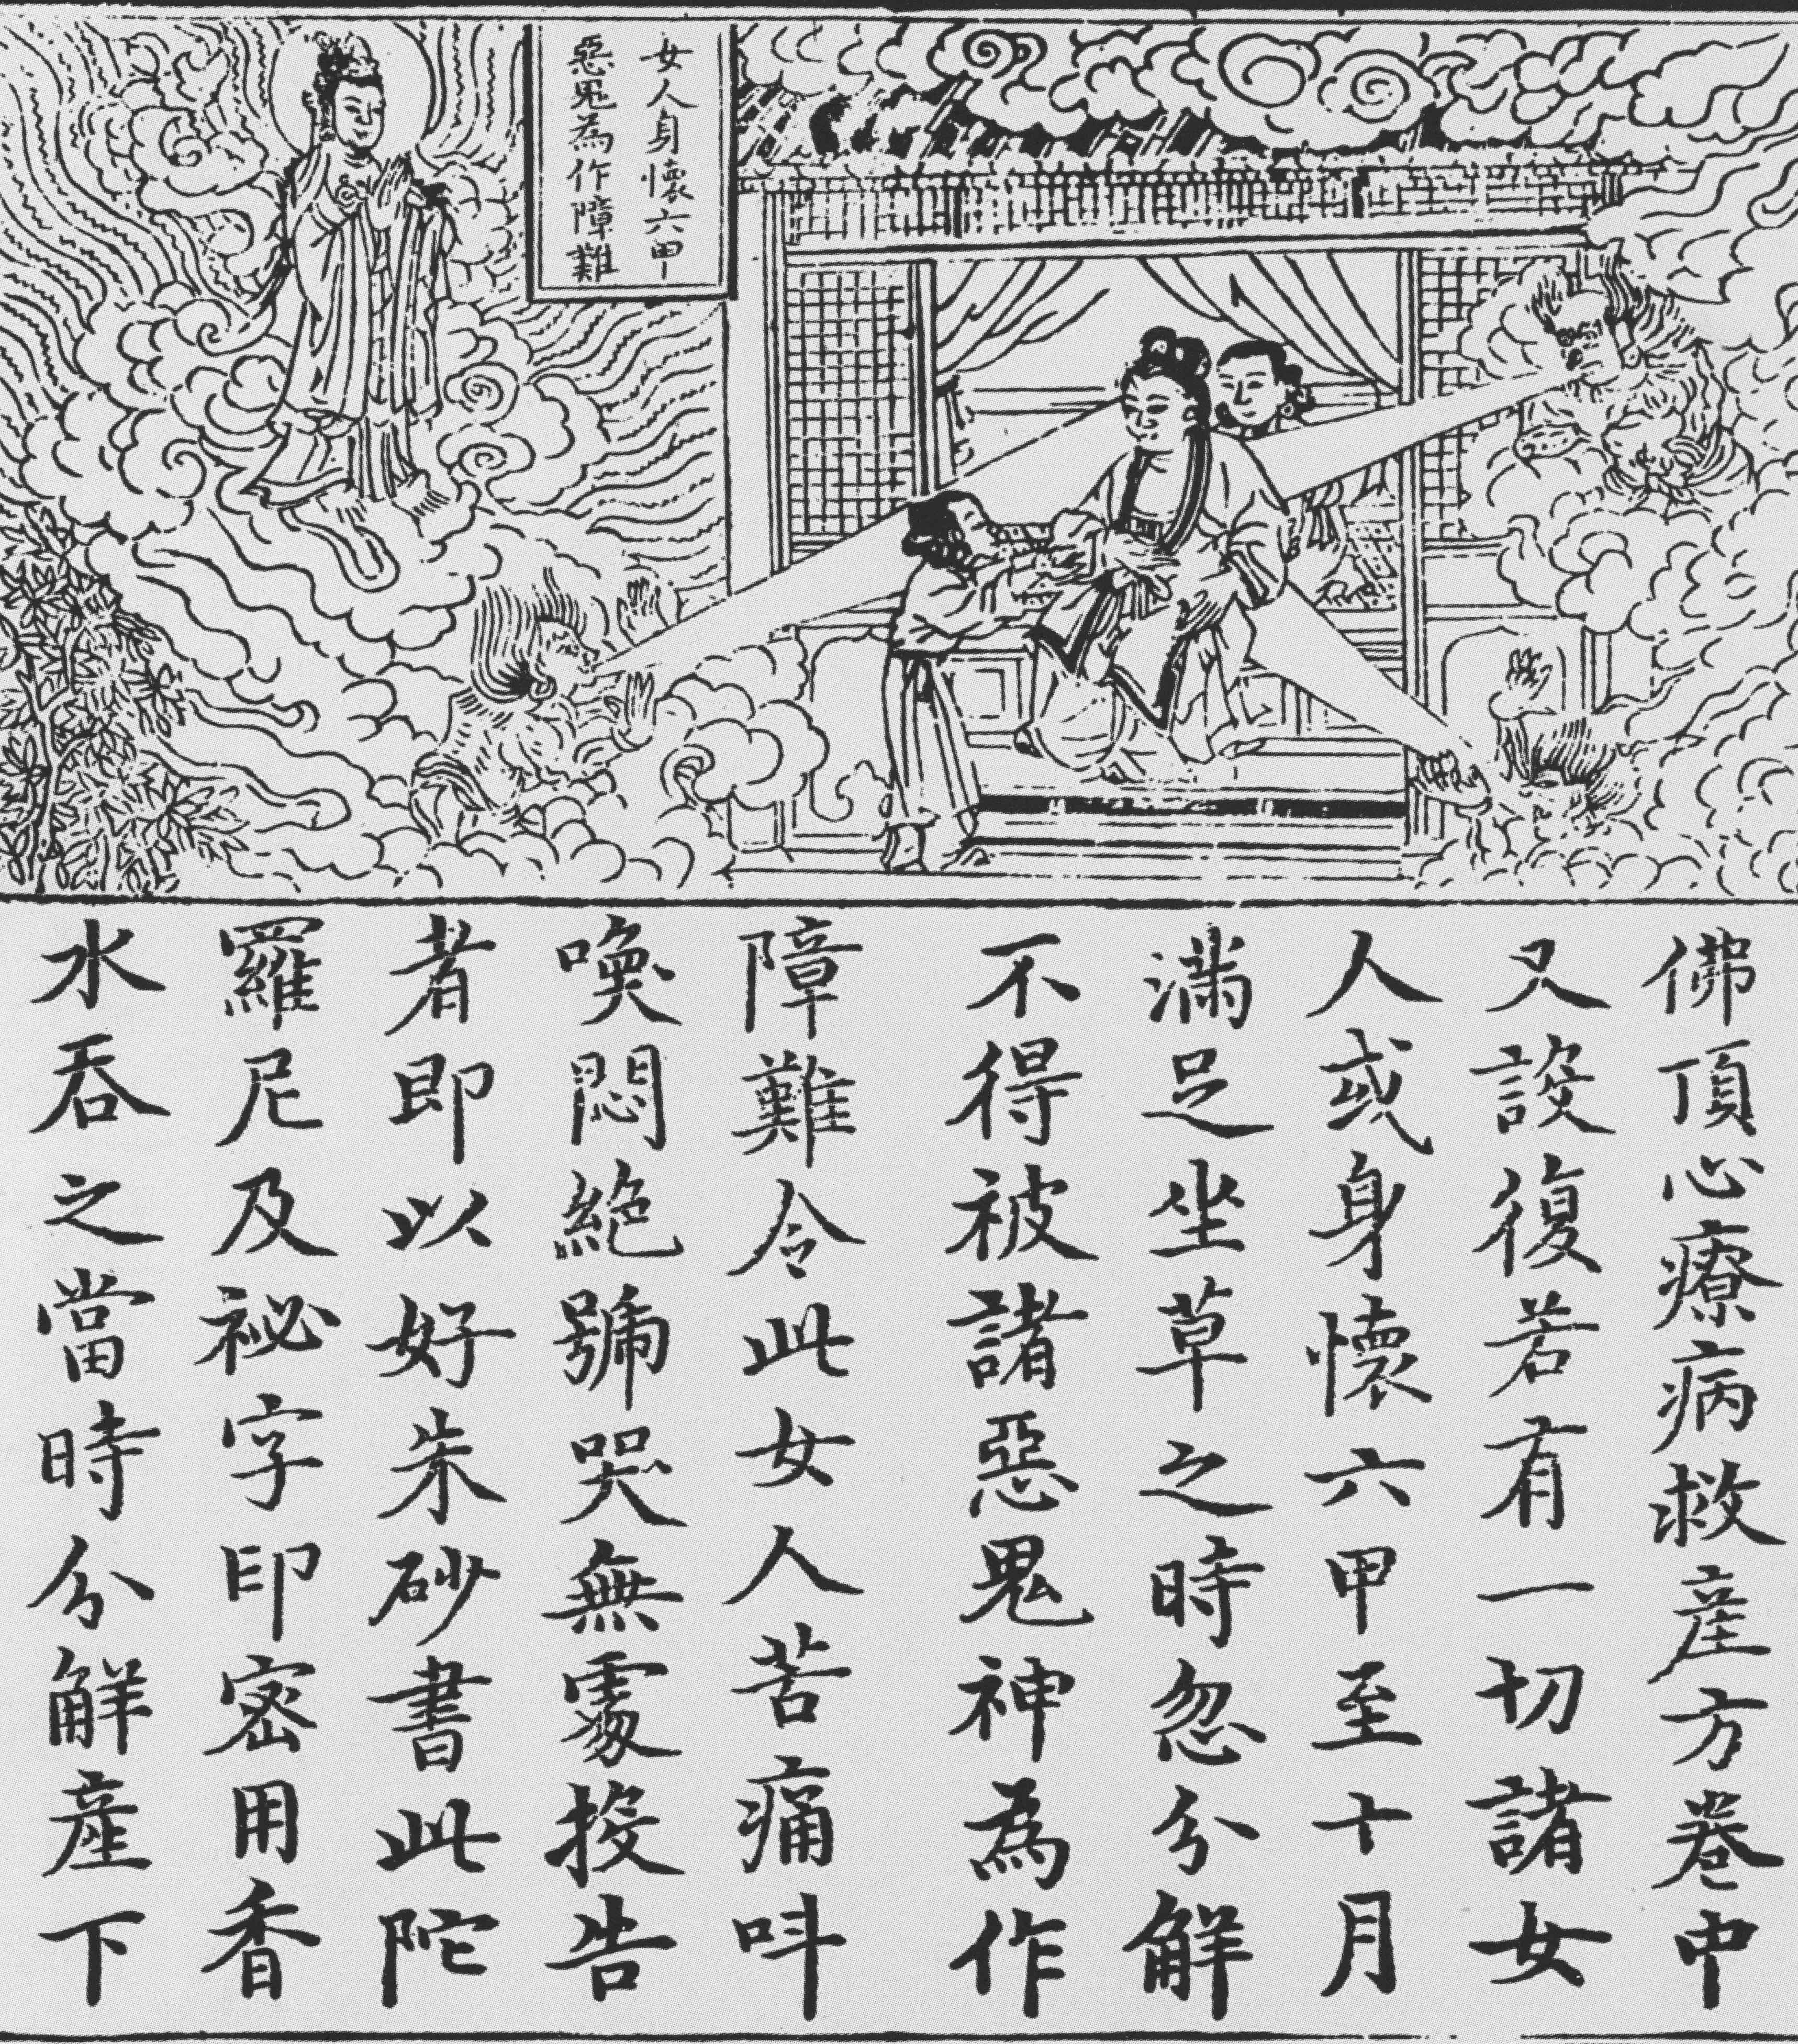 女人身懷六甲
惡鬼為作障難
佛頂心療病救產方卷中
又設復若有一切諸女
人或身懷六甲至十月
滿足坐草之時忽分解
不得被諸惡鬼神為作
障難令此女人苦痛呌
喚悶絕號哭無處投告
者即以好朱砂書此陀
羅尼及祕字印密用香
水吞之當時分解產下